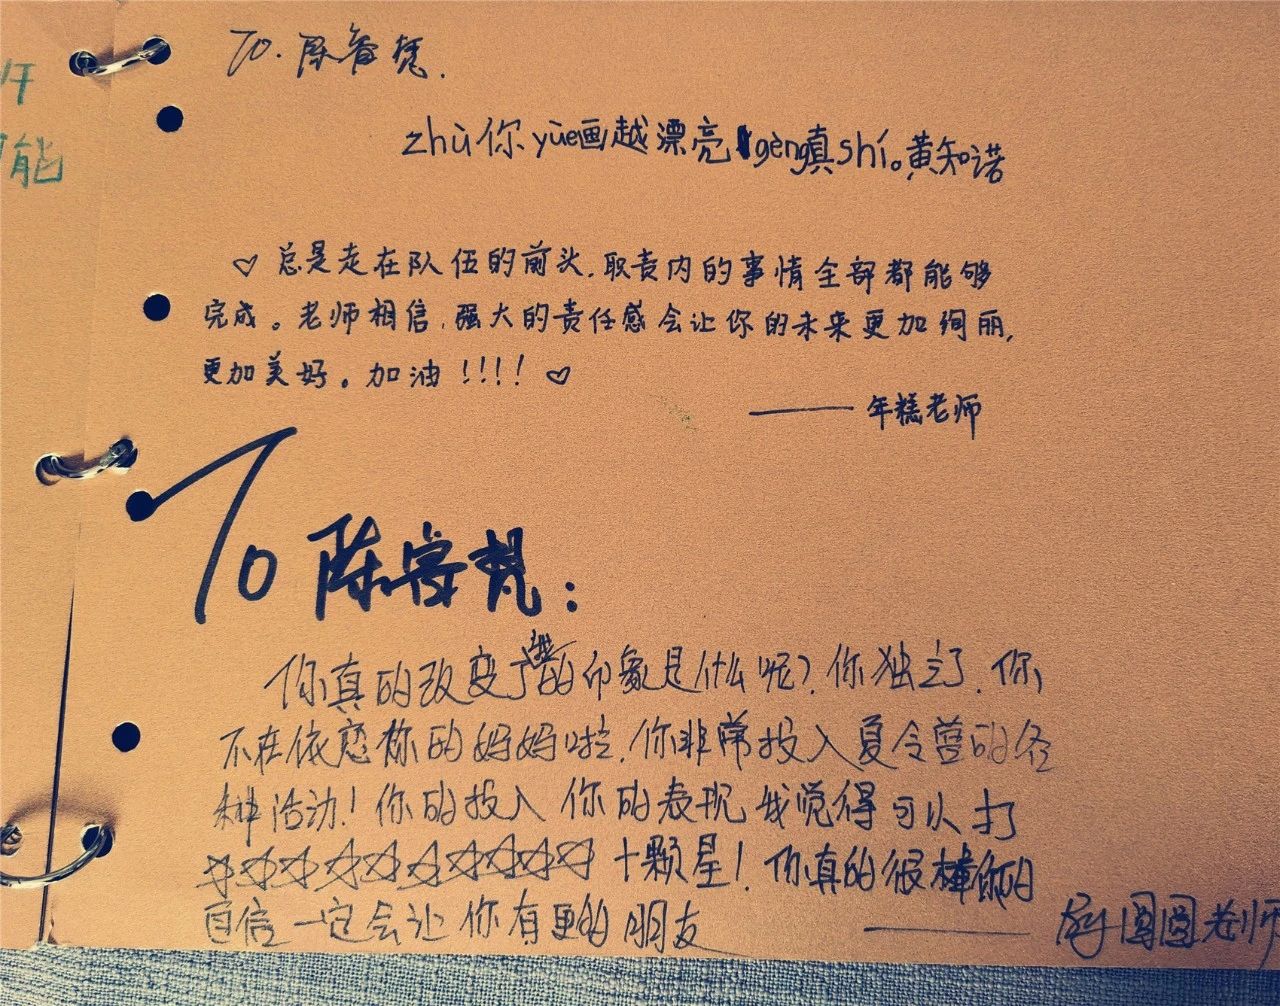 午
能
To. 陈睿梵.
zhù你yùe画越漂亮gèng真shí。黄知诺
♡ 总是走在队伍的前头,职责内的事情全部都能够
完成。老师相信,强大的责任感会让你的未来更加绚丽,
更加美好。加油!!!!♡
——年糕老师
To 陈睿梵:
你真的改变了的印象是什么呢?你独立了.你
不在依恋你的妈妈啦.你非常投入夏令营的各
种活动!你的投入 你的表现 我觉得可以打
☆☆☆☆☆☆☆☆☆☆十颗星!你真的很棒你的
自信一定会让你有更的朋友
——圆圆老师